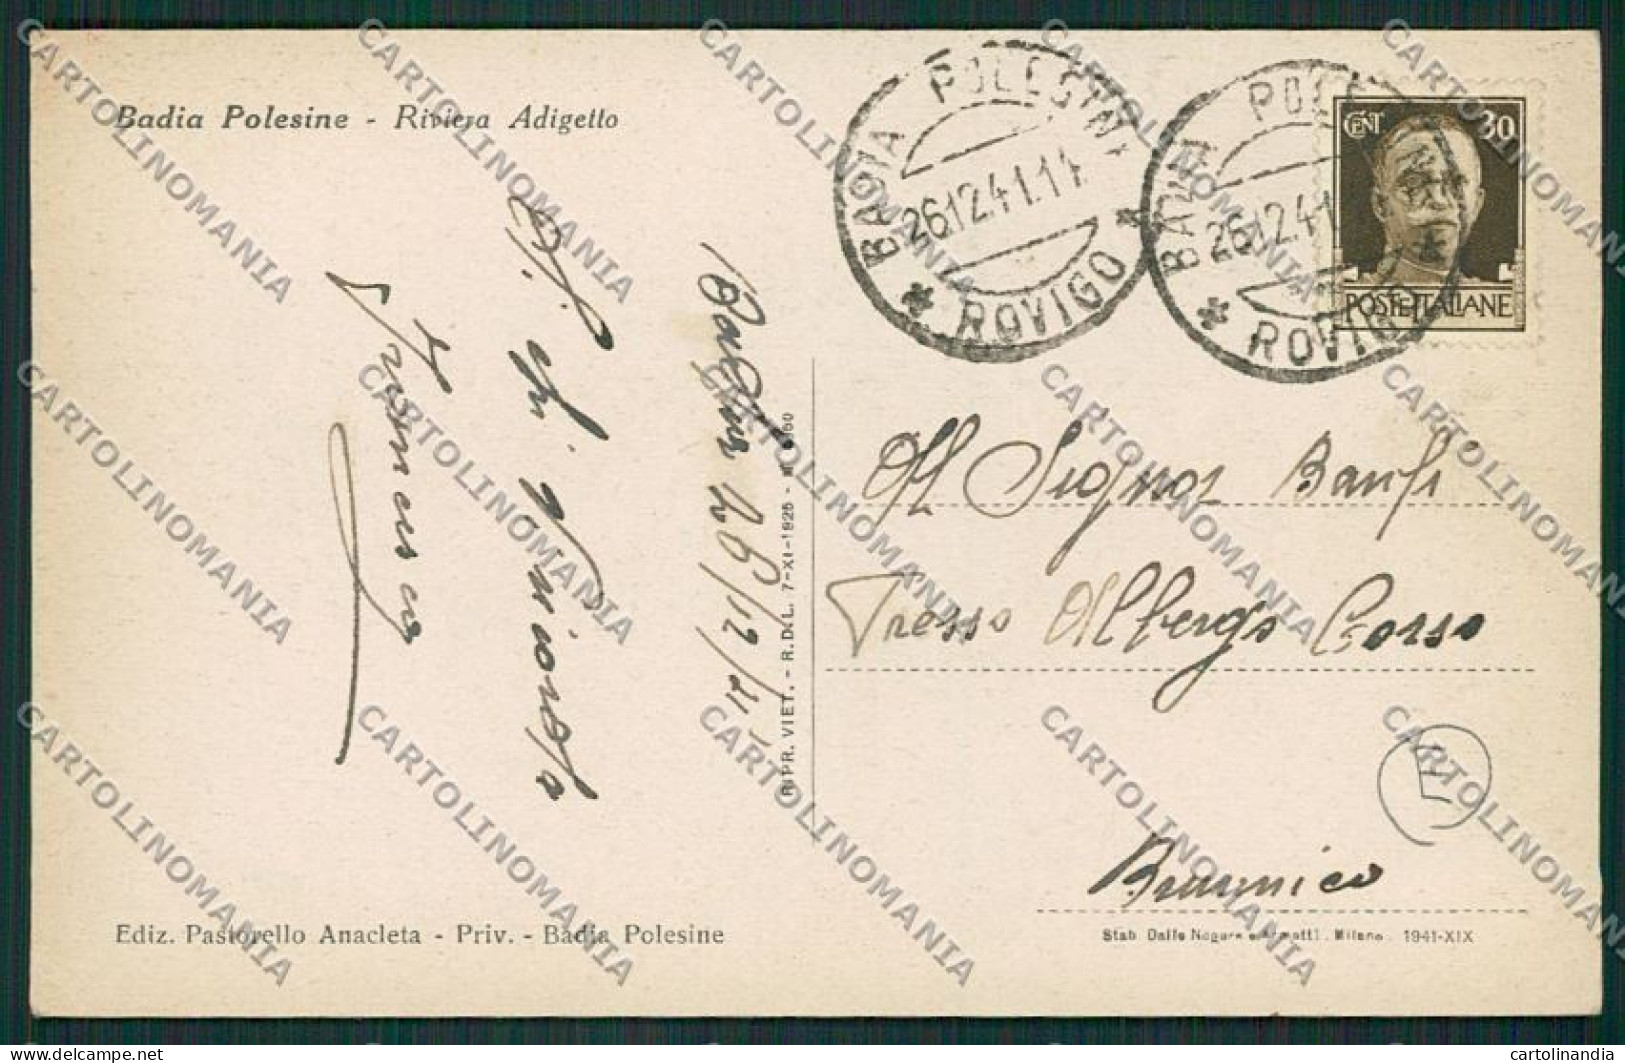 Badia Polesine - Riviera Adigetto
BADIA POLESINE
26.12.41.11
* ROVIGO *
BADIA POLESINE
26.12.41
* ROVIGO *
CENT 30
POSTE ITALIANE
26/12/41
RIPR. VIET. - R.D.L. 7-XI-1925 - N
Al Signor Banfi
Presso Albergo Corso
Ediz. Pastorello Anacleta - Priv. - Badia Polesine
Stab. Dalle Nogare e Armetti . Milano . 1941-XIX
CARTOLINOMANIA
delcampe.net
cartolinandia